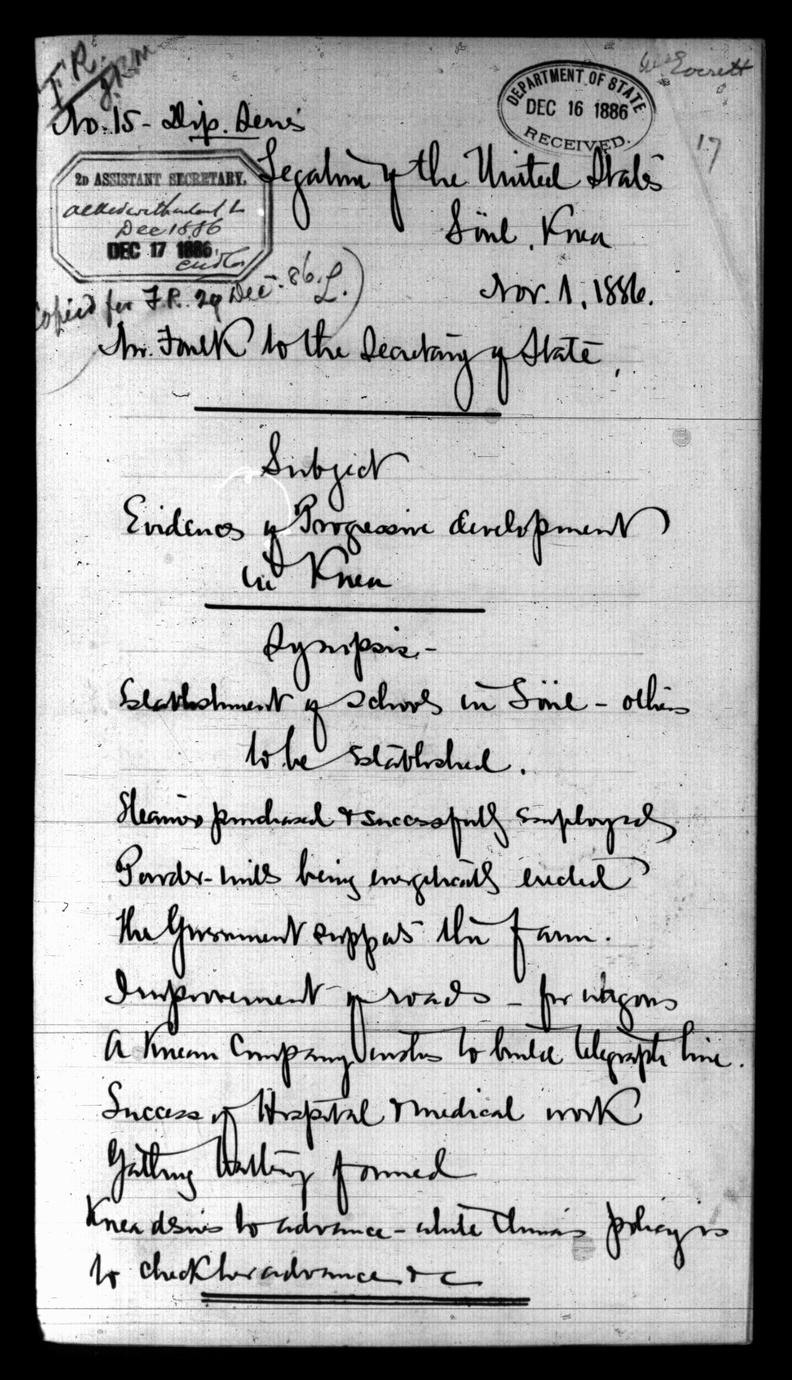 F.R.
No. 15 - Dip. Series
DEPARTMENT OF STATE
DEC 16 1886
RECEIVED.
Everett
17
2D ASSISTANT SECRETARY.
Dec 15, 86
DEC 17 1886
Legation of the United States
Söul, Korea
Nov. 1, 1886.
Copied for F.R. 29 Dec. 86. L.)
Mr. Foulk to the Secretary of State,
Subject
Evidences of Progressive development
in Korea
Synopsis.-
Establishment of schools in Söul - others
to be established.
Steamers purchased & successfully employed
Powder-mills being energetically erected
The Government the farm.
Improvement of roads - for wagons
A Korean Company wishes to build telegraph line.
Success of Hospital & medical work
Gatling battery formed
Korea desires to advance - while China's policy is
to check her advance &c